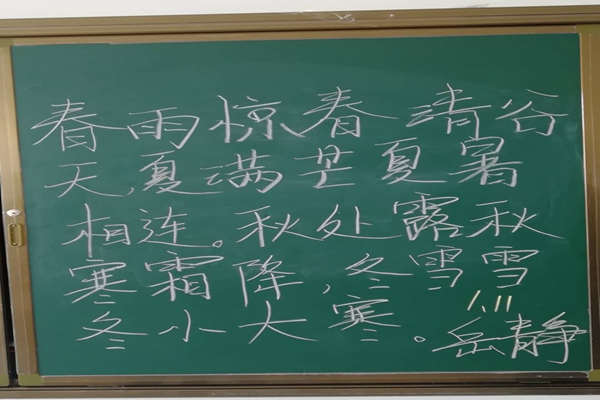 春雨惊春清谷
天,夏满芒夏暑
相连。秋处露秋
寒霜降,冬雪雪
冬小大寒。岳静